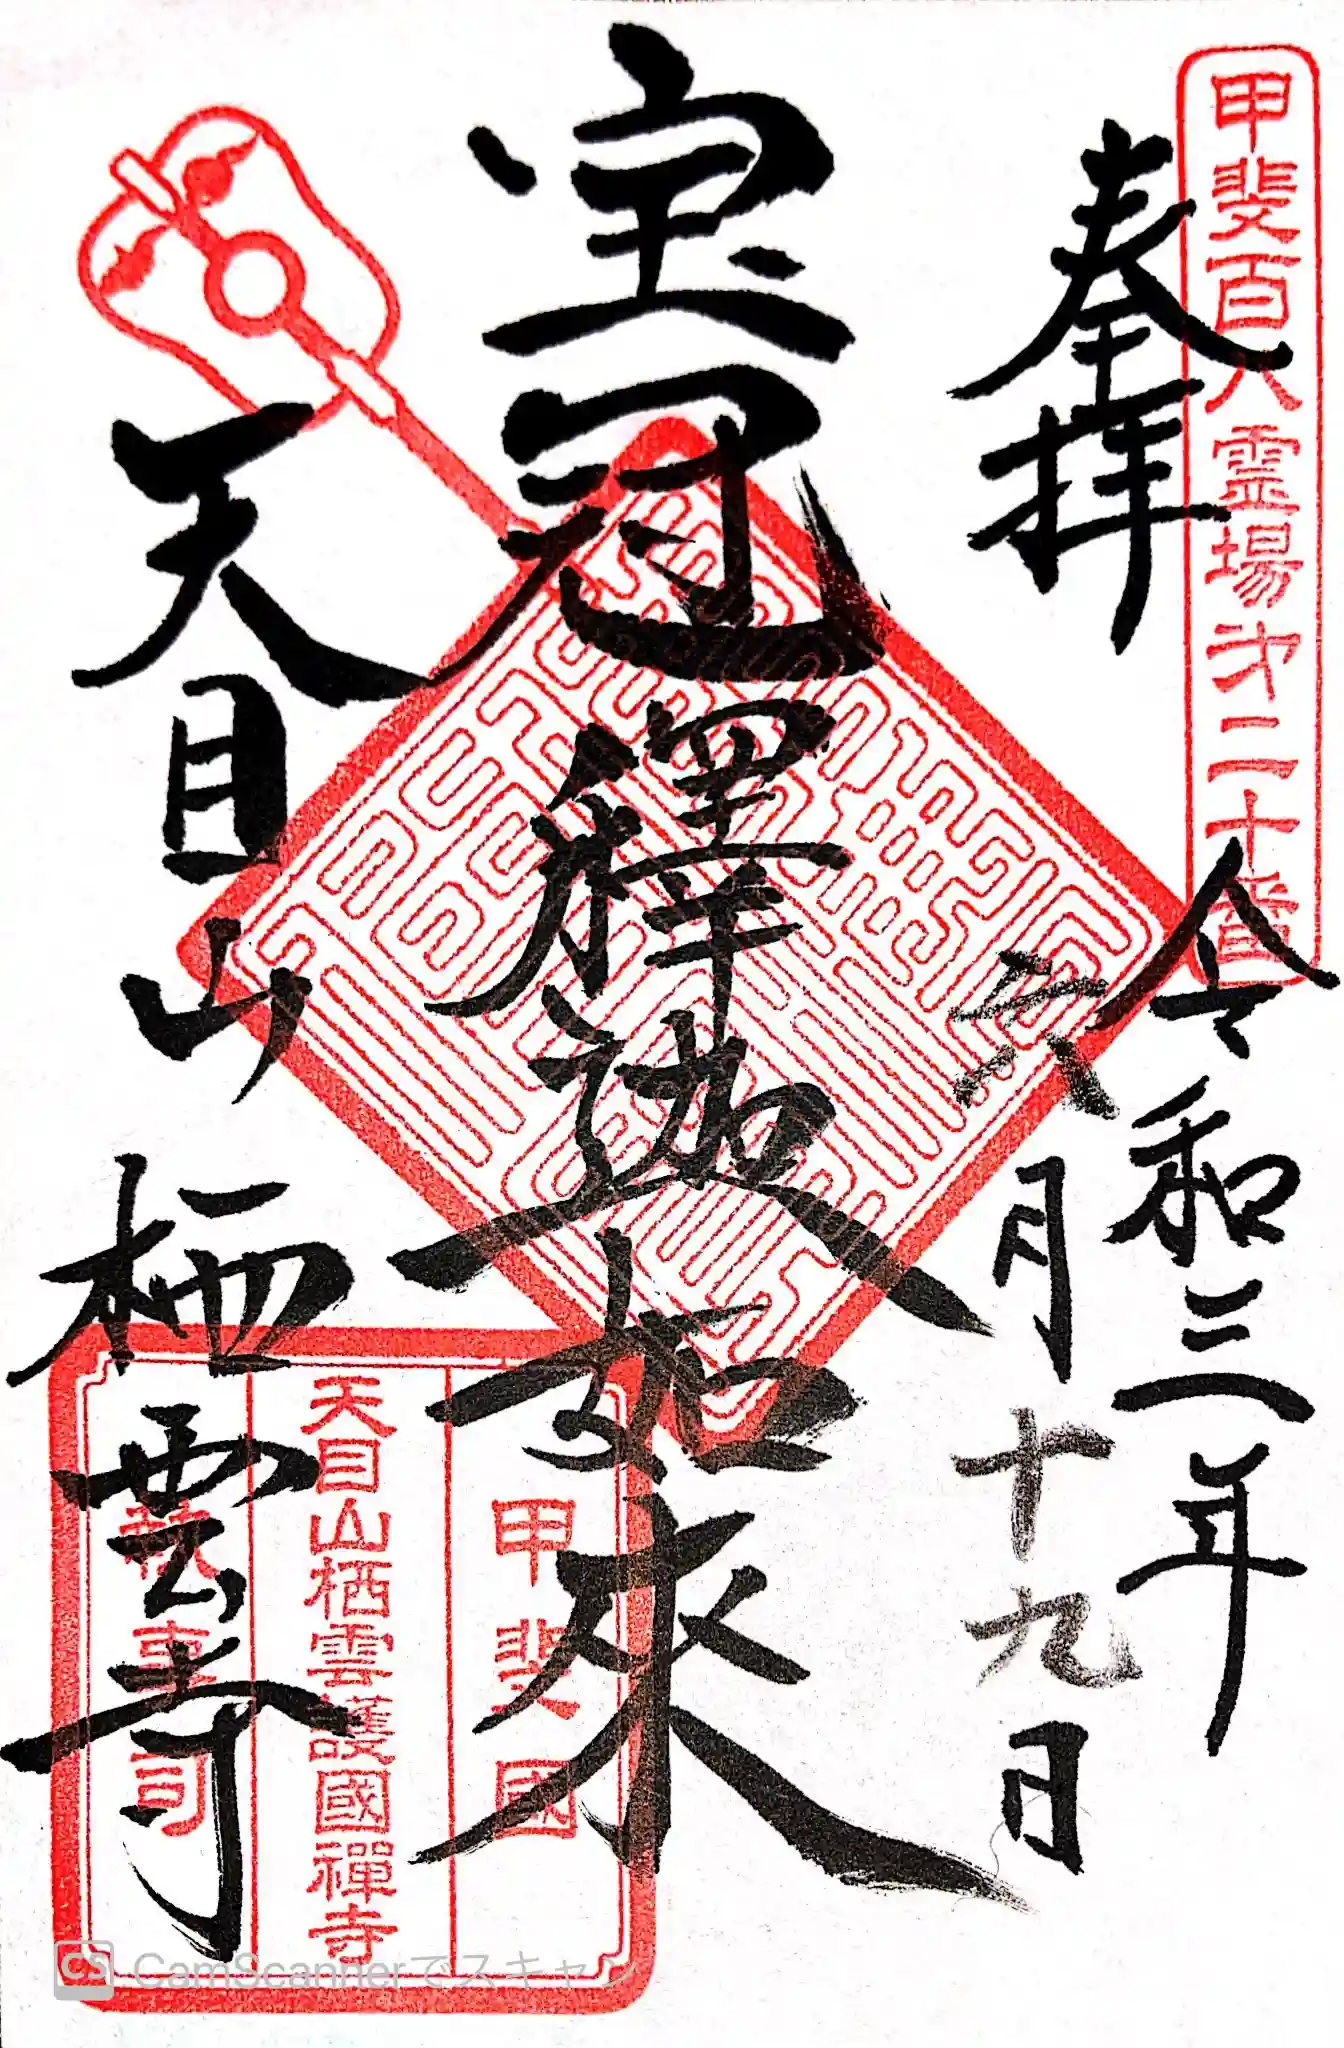 甲斐百八霊場㐧二十番
奉拝
令和三年
六月十九日
宝冠釋迦如來
天目山
栖雲寺
甲斐國
天目山栖雲護國禪寺
執事司
CS CamScannerでスキャン